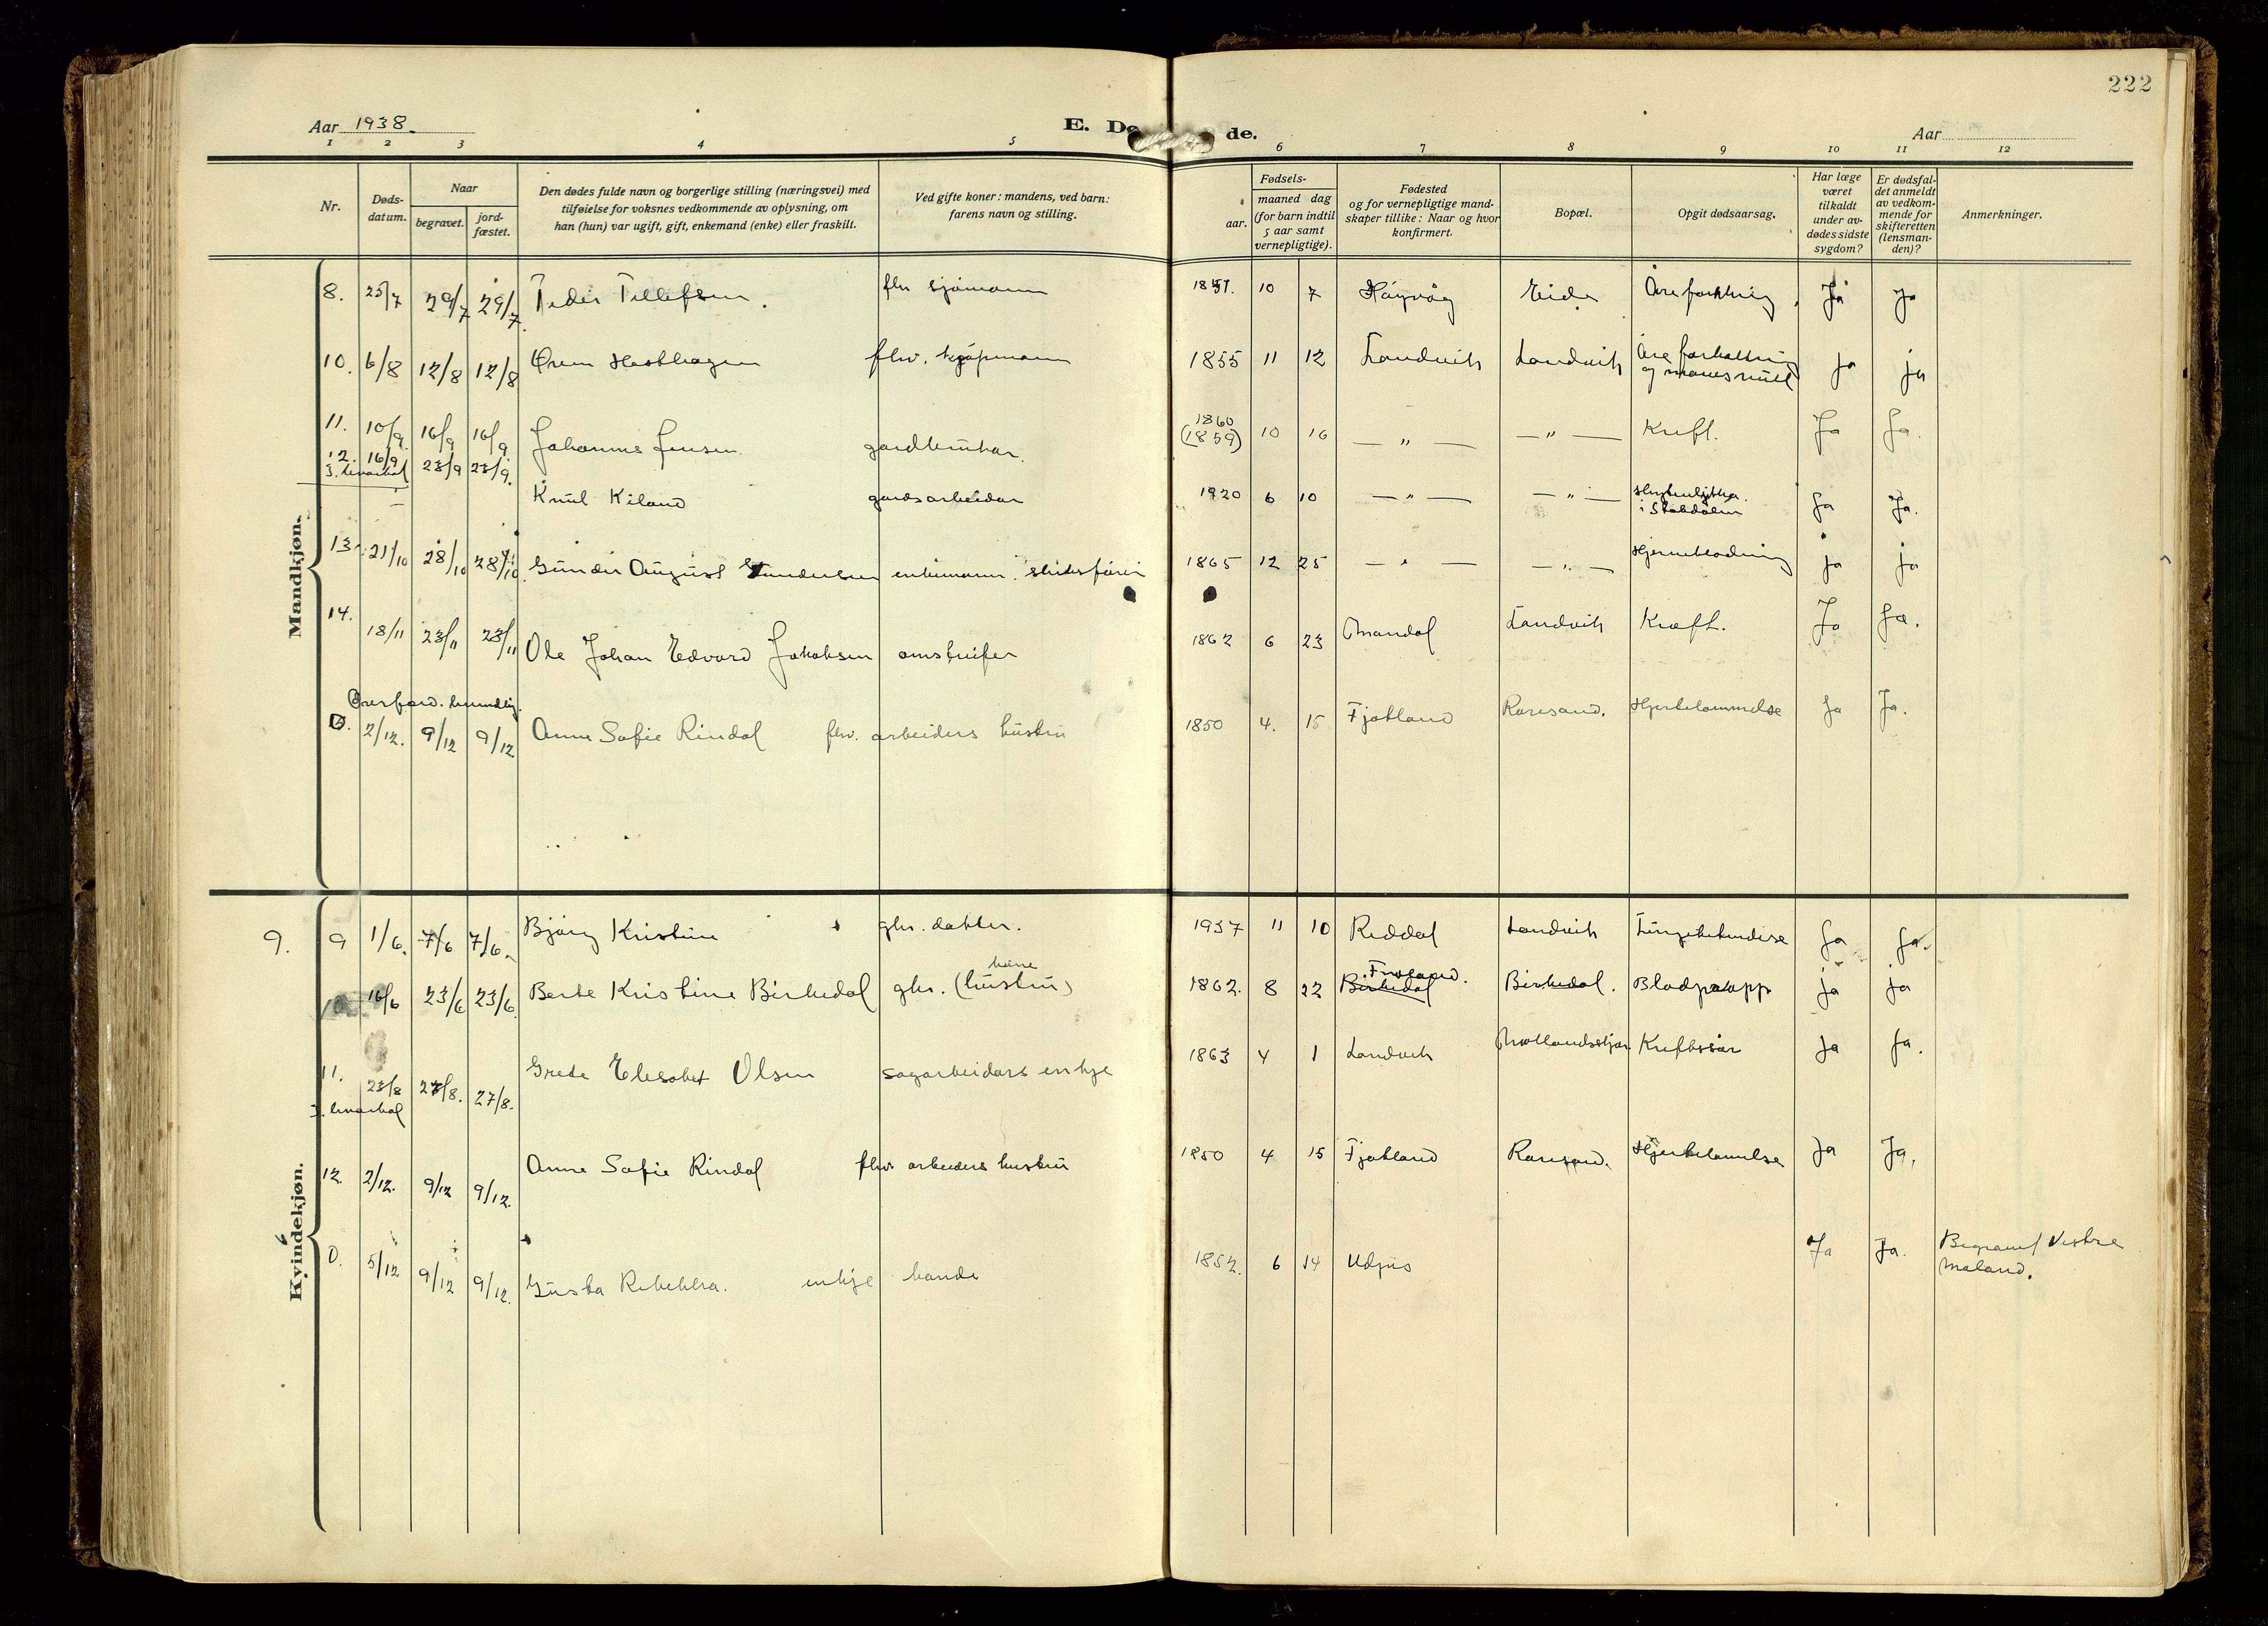 222
Aar 1938.
E. De de.
Aar
1 2 3 4 5 6 7 8 9 10 11 12
Nr.
Døds-
datum.
Naar
begravet.
jord-
fæstet.
Den dødes fulde navn og borgerlige stilling (næringsvei) med
tilføielse for voksnes vedkommende av oplysning, om
han (hun) var ugift, gift, enkemand (enke) eller fraskilt.
Ved gifte koner: mandens, ved barn:
farens navn og stilling.
Fødsels-
aar.
maaned dag
(for barn indtil
5 aar samt
vernepligtige).
Fødested
og for vernepligtige mand-
skaper tillike: Naar og hvor
konfirmert.
Bopæl.
Opgit dødsaarsag.
Har læge
været
tilkaldt
under av-
dødes sidste
sygdom?
Er dødsfal-
det anmeldt
av vedkom-
mende for
skifteretten
(lensman-
den)?
Anmerkninger.
Mandkjøn.
8. 25/7 29/7 29/7 Peder Tellefsen. flv sjømann 1851. 10 7 Høyvåg Eide Åreforkalkning Ja Ja
10. 6/8 12/8 12/8 flhv. kjøpmann 1855 11 12 Landvik Landvik Åreforkalkning
og ja ja
11. 10/9 16/9 16/9 Johannes Jensen gardbrukar. 1860
(1859) 10 16 — „ — — „ — Kreft. Ja Ja.
12. 16/9 23/9 23/9.
Knut Kiland gardsarbeidar 1920 6 10 — „ — — „ — Ulykkulykke
i Ja Ja.
13. 21/10 28/10 28/10 Gunder August Gundersen enkemann. skibsfører 1865 12 25 — „ — — „ — Hjerneblødning ja ja
14. 18/11 23/11 23/11 Ole Johan Edvard Jakobsen omstreifer 1862 6 23 Mandal Landvik Kræft. Ja Ja.
Overførd.
0. 2/12. 9/12 9/12. Anne Sofie Rindal flw. arbeiders hustru 1850 4. 15 Fjotland Roresand. Hjertelammelse Ja Ja.
Kvindekjøn.
9. 9 1/6. 7/6 7/6. Bjørg Kristine gbr. dotter. 1937 11 10 Reddal Landvik Lungebetendelse Ja Ja.
kone
Froland.
10 16/6 23/6 23/6. Berte Kristine Birkedal gbr. (hustru) 1862. 8 22 Birkedal Birkedal. Blodpropp ja ja
11. 23/8 27/8. 27/8. Grete Elesabet Olsen sagarbeidars enkje 1863 4 1 Landvik Kreftsår Ja Ja.
12. 2/12. 9/12 9/12. Anne Sofie Rindal flw. arbeiders hustru 1850 4 15 Fjotland Roresand. Hjertelammelse Ja Ja.
0. 5/12 9/12 9/12. Gusta Rebekka. enkje 1852. 6 14 Udjus Ja Ja. Begravet Vestre
Moland.